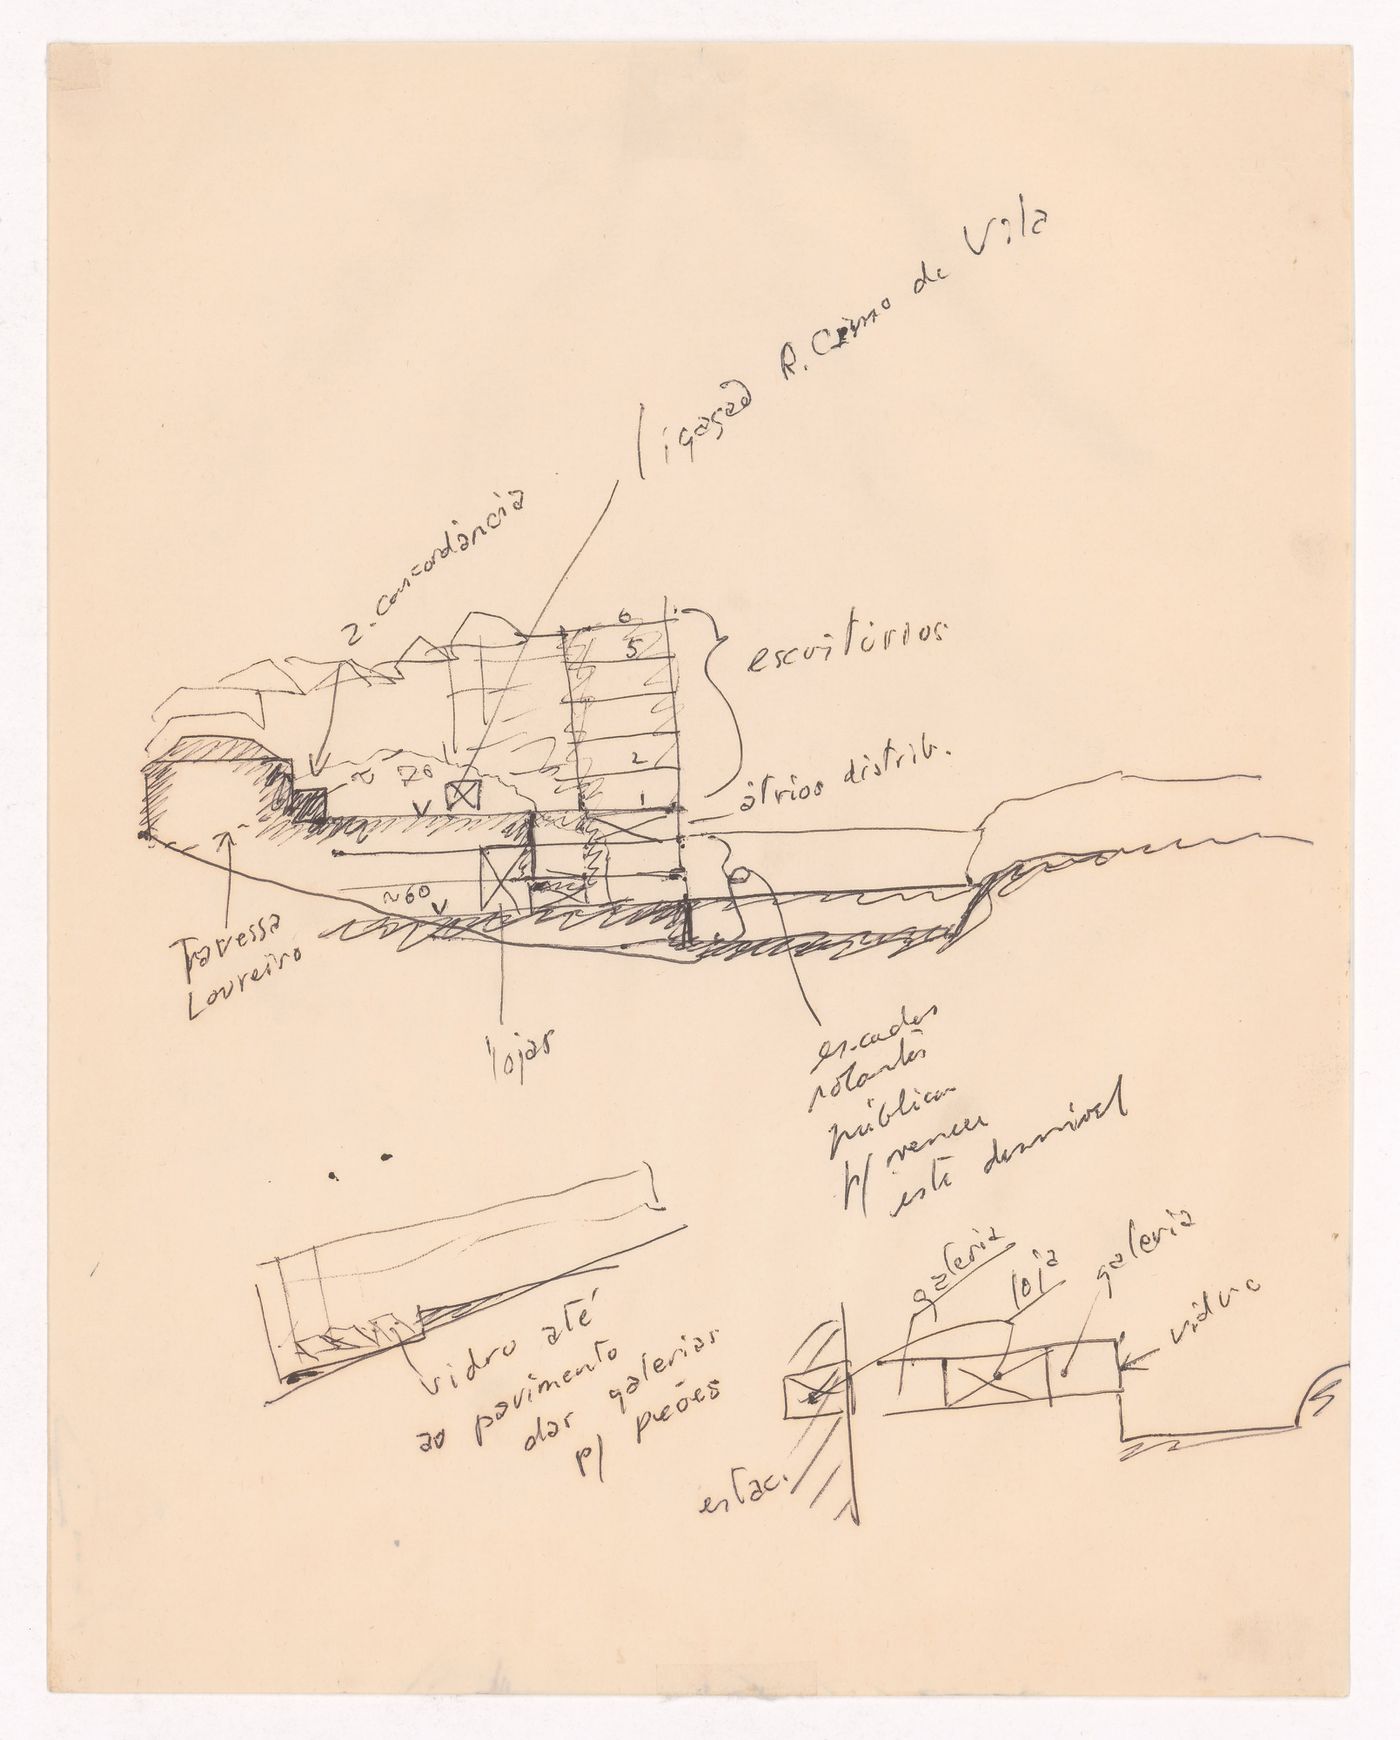 ligação R. Cimo de Vila
2. concordância
6
5
escritórios
2
1
~ 70
átrios distrib.
~60
Travessa
Loureiro
lojas
escadas
rolantes
públicas
p/ vencer
este desnível
galeria
loja
galeria
vidro
vidro até
ao pavimento
dar galerias
p/ peões
estac.